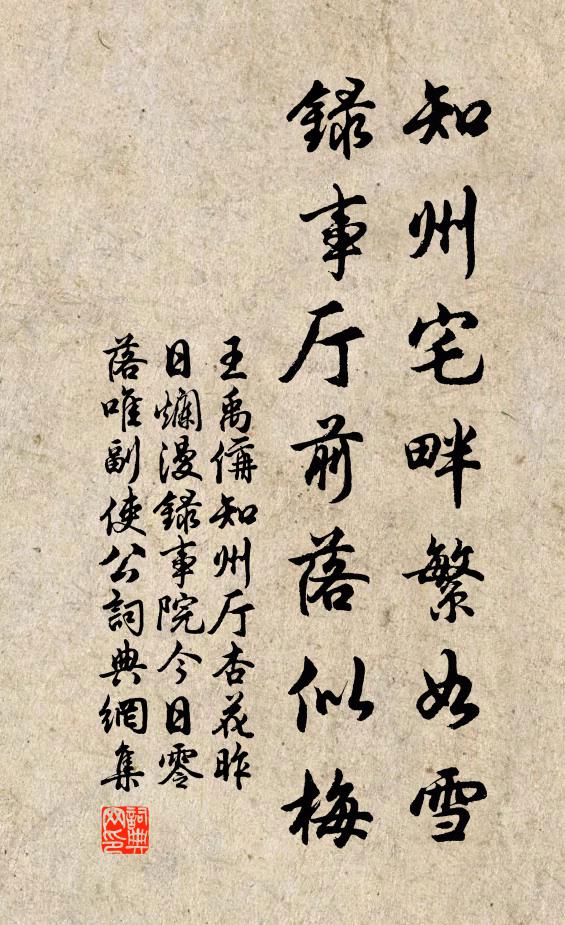 知州宅畔繁如雪
録事厅前落似梅
王禹偁知州厅杏花昨
日爛漫録事院今日零
落唯副使公詞典網集
詞典网印